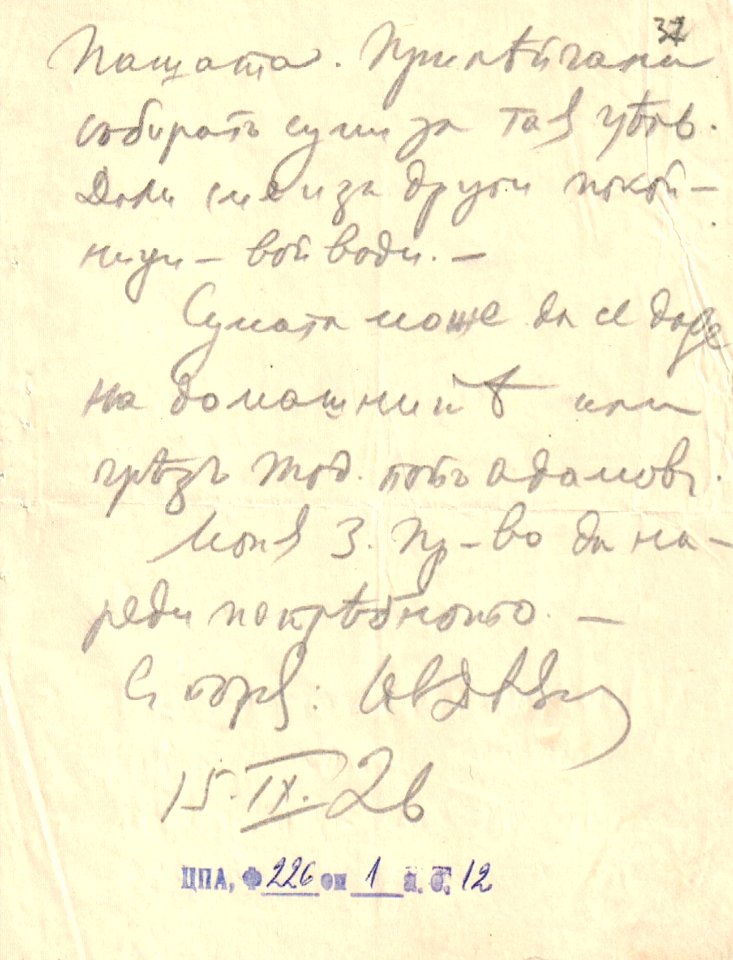 32
Пащата. Прилѣпчани
събиратъ суми за тая цѣль.
Дали сме и за други покой-
ници – войводи. –
Сумата може да се даде
на домашнитѣ или
чрѣзъ Тод. попъ Адамовъ.
Моля З. Пр-во да на-
реди потрѣбното. –
С поздр.:
15.IX.26
ЦПА, Ф 226 оп 1 а. е. 12